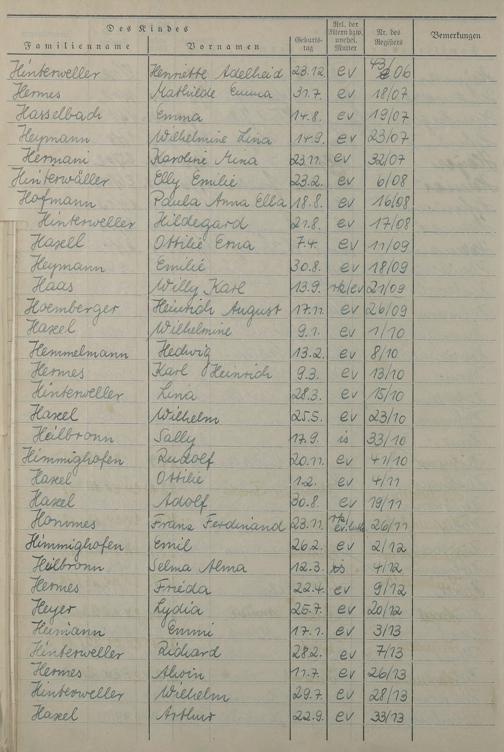 Des Kindes
Familienname Vornamen Geburtstag Rel. der Eltern bzw. unehel. Mutter Nr. des Registers Bemerkungen
Hinterweller Henriette Adelheid 23.12. ev 06
Hermes Mathilde Emma 31.7. ev 18/07
Hasselbach Emma 14.8. ev 19/07
Heymann Wilhelmine Lina 14.9. ev 23/07
Hermani Karoline Mina 23.11. ev 32/07
Hinterwäller Elly Emilie 23.2. ev 6/08
Hofmann Paula Anna Ella 18.8. ev 16/08
Hinterweller Hildegard 21.8. ev 17/08
Haxell Ottilie Erna 7.4. ev 11/09
Heymann Emilie 30.8. ev 18/09
Haas Willy Karl 13.9. rk/ev 21/09
Hoemberger Heinrich August 17.11. ev 26/09
Haxel Wilhelmine 9.1. ev 1/10
Hemmelmann Hedwig 13.2. ev 8/10
Hermes Karl Heinrich 9.3. ev 13/10
Hinterweller Lina 28.3. ev 15/10
Haxel Wilhelm 25.5. ev 23/10
Heilbronn Sally 17.9. is 33/10
Himmighofen Rudolf 20.11. ev 41/10
Haxel Ottilie 1.2. ev 4/11
Haxel Adolf 30.8. ev 19/11
Hommes Franz Ferdinand 23.11. 26/11
Himmighofen Emil 26.2. ev 2/12
Heilbronn Selma Alma 12.3. is 4/12
Hermes Frieda 22.4. ev 9/12
Heyer Lydia 25.7. ev 20/12
Heimann Emmi 17.1. ev 3/13
Hinterweller Richard 28.2. ev 7/13
Hermes Alwin 11.7. ev 26/13
Hinterweller Wilhelm 29.7. ev 28/13
Haxel Arthur 22.9. ev 33/13